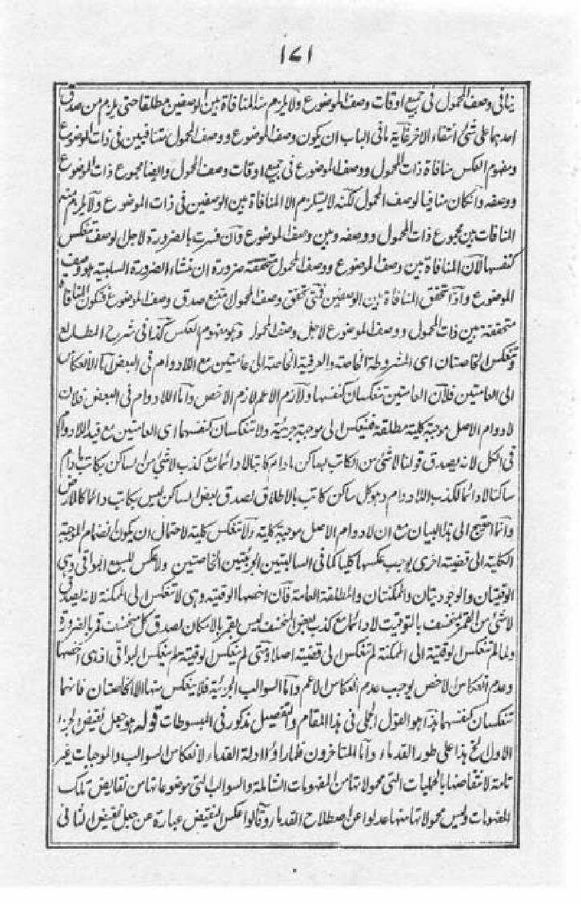 ۱۷۱
ينافى وصف المحمول فى جميع اوقات وصف الموضوع ولا يلزم منه المنافاة بين الوصفين مطلقا حتى يلزم من صدق
احدهما على شئ انتفاء الاخر غاية ما فى الباب ان يكون وصف الموضوع ووصف المحمول متنافيين فى ذات الموضوع
ومفهوم العكس منافاة ذات المحمول ووصف الموضوع فى جميع اوقات وصف المحمول وايضا مجموع ذات الموضوع
ووصفه وان كان منافيا لوصف المحمول لكنه لا يستلزم الا المنافاة بين الوصفين فى ذات الموضوع ولا يلزم منه
المنافات بين مجموع ذات المحمول ووصفه وبين وصف الموضوع وان فسرت بالضرورة لاجل الوصف تنعكس
كنفسها لان المنافاة بين وصف الموضوع ووصف المحمول متحققة ضرورة ان منشاء الضرورة السلبية هو وصف
الموضوع واذا تحقق المنافاة بين الوصفين فمتى تحقق وصف المحمول امتنع صدق وصف الموضوع فتكون المنافاة
متحققة بين ذات المحمول ووصف الموضوع لاجل وصف المحمول وهو مفهوم العكس كذا فى شرح المطالع
وتنعكس الخاصتان اى المشروطة الخاصة والعرفية الخاصة الى عامتين مع اللادوام فى البعض اما الانعكاس
الى العامتين فلان العامتين تنعكسان كنفسهما ولازم الاعم لازم الاخص واما اللادوام فى البعض فلان
لادوام الاصل موجبة كلية مطلقة فينعكس الى موجبة جزئية ولا تنعكسان كنفسهما اى العامتين مع قيد اللادوام
فى الكل لانه يصدق قولنا لا شئ من الكاتب بساكن ما دام كاتبا لا دائما مع كذب لا شئ من الساكن بكاتب ما دام
ساكنا لا دائما لكذب اللادوام وهو كل ساكن كاتب بالاطلاق لصدق بعض الساكن ليس بكاتب دائما كالارض
وانما احتيج الى هذا البيان مع ان لادوام الاصل موجبة كلية ولا تنعكس كلية لاحتمال ان يكون انضمام الموجبة
الكلية الى قضية اخرى يوجب عكسها كليا كما فى السالبتين الجزئيتين الخاصتين ولا عكس للسبع البواقى وهى
الوقتيتان والوجوديتان والممكنتان والمطلقة العامة فان اخصها الوقتية وهى لا تنعكس الى الممكنة لانه يصدق
لا شئ من القمر بمنخسف بالتوقيت لا دائما مع كذب بعض المنخسف ليس بقمر بالامكان لصدق كل منخسف قمر بالضرورة
ولما لم تنعكس الوقتية الى الممكنة لم تنعكس الى قضية اصلا ومتى لم تنعكس الوقتية لم تنعكس البواقى اذ هى اخصها
وعدم انعكاس الاخص يوجب عدم انعكاس الاعم واما السوالب الجزئية فلا ينعكس منها الا الخاصتان فانهما
تنعكسان كنفسهما هذا هو القول الجملى فى هذا المقام والتفصيل مذكور فى المبسوطات قوله هو جعل نقيض الجزء
الاول الخ هذا على طور القدماء واما المتاخرون فلما راؤا ادلة القدماء لانعكاس السوالب والموجبات غير
تامة لانتقاضها بالحمليات التى محمولاتها من المفهومات الشاملة والسوالب التى موضوعاتها من نقايض تلك
المفهومات وليس محمولاتها منها عدلوا عن اصطلاح القدماء وقالوا عكس النقيض عبارة عن جعل نقيض الثانى